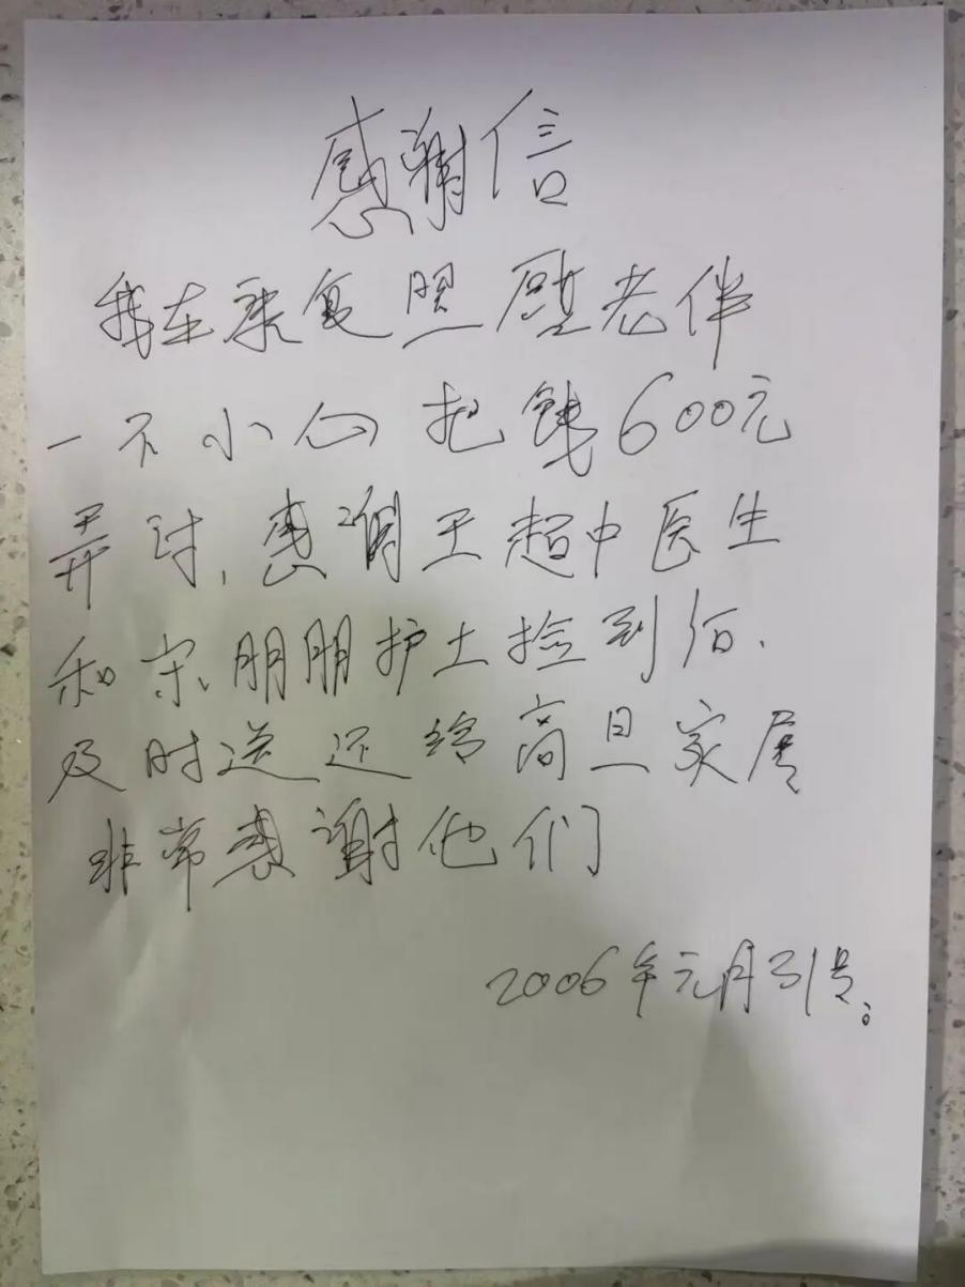 感谢信
我在康复照顾老伴
一不小心把钱600元
弄讨,感谓王超中医生
和宋朋朋护士捡到后.
及时送还给高旦家属
非常感谢他们
2006年元月31号。